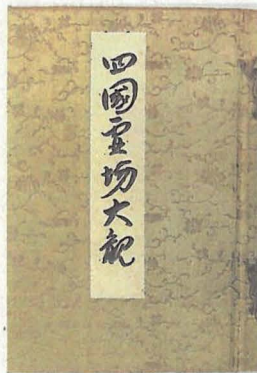 四國霊場大觀